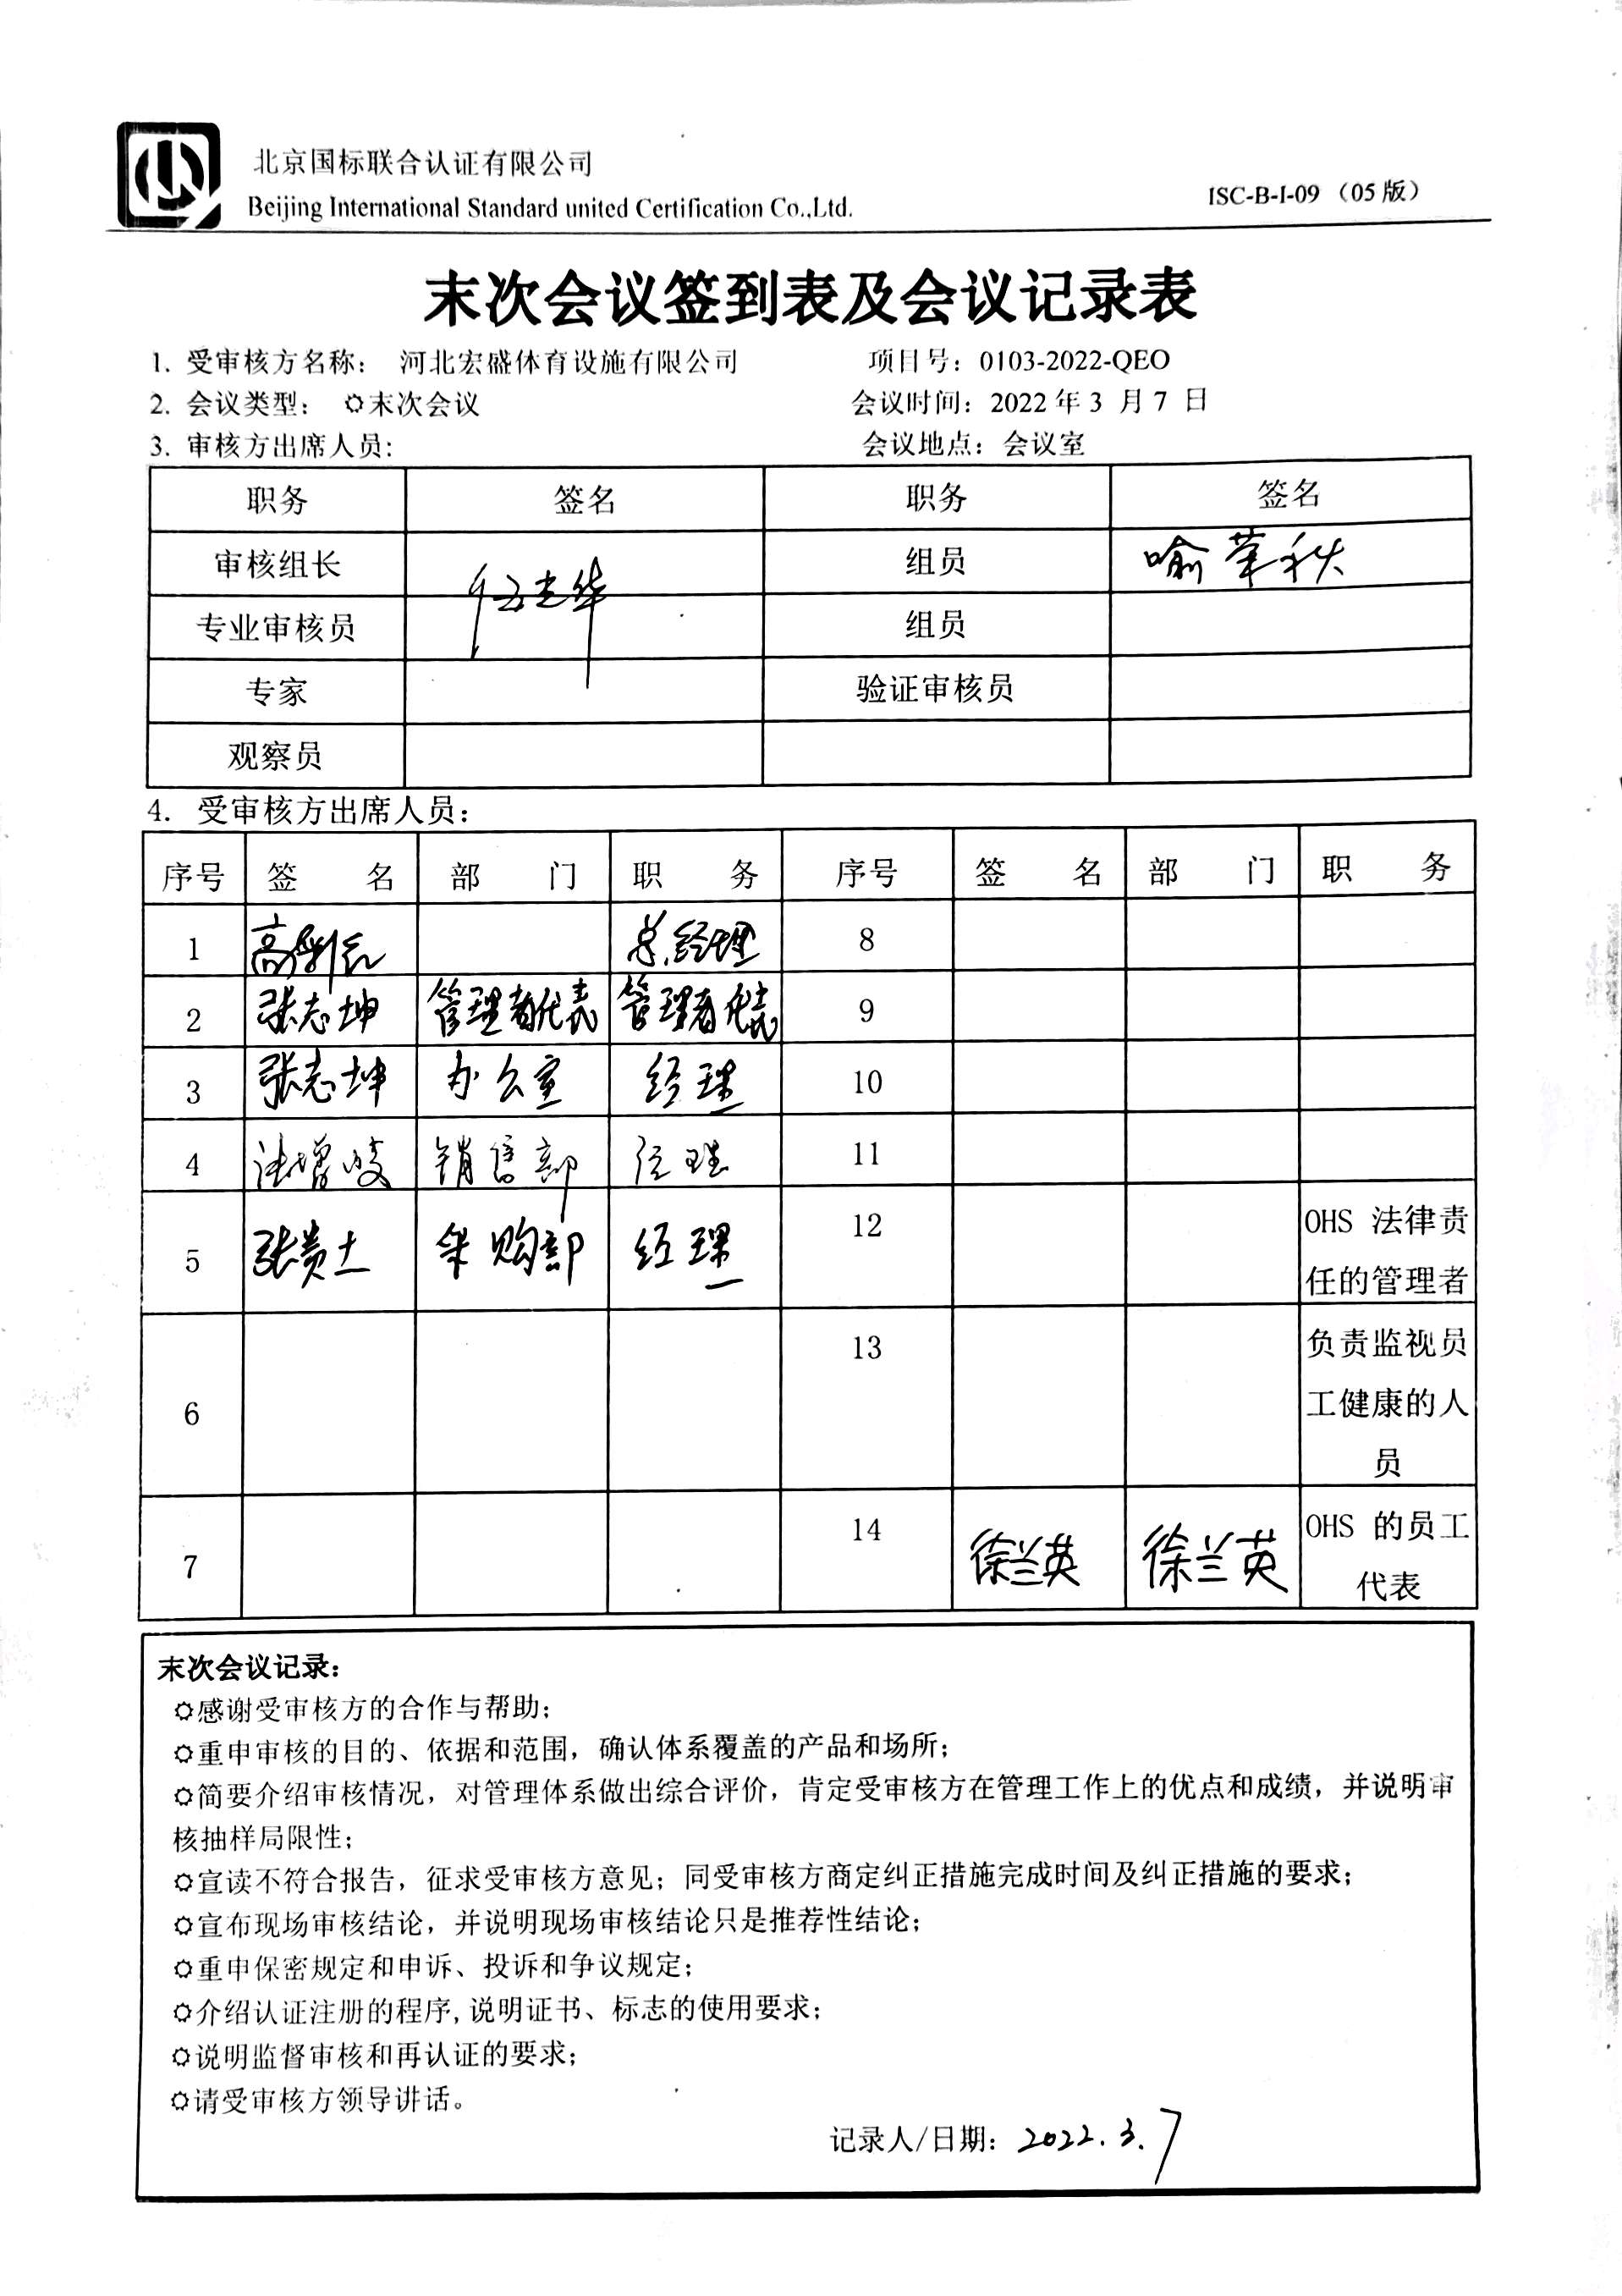 北京国标联合认证有限公司
Beijing International Standard united Certification Co.,Ltd.
ISC-B-I-09（05版）
末次会议签到表及会议记录表
1. 受审核方名称： 河北宏盛体育设施有限公司 项目号：0103-2022-QEO
2. 会议类型： ✡末次会议 会议时间：2022年3 月7 日
3. 审核方出席人员: 会议地点：会议室
职务 签名 职务 签名
审核组长 组员 喻荣秋
专业审核员 组员
专家 验证审核员
观察员
4. 受审核方出席人员：
序号 签 名 部 门 职 务 序号 签 名 部 门 职 务
1 总经理 8
2 张志坤 管理者代表 管理者代表 9
3 张志坤 办公室 经理 10
4 销售部 经理 11
5 张贵士 采购部 经理 12 OHS 法律责
任的管理者
6 13 负责监视员
工健康的人
员
7 14 徐兰英 徐兰英 OHS 的员工
代表
末次会议记录：
✡感谢受审核方的合作与帮助；
✡重申审核的目的、依据和范围，确认体系覆盖的产品和场所；
✡简要介绍审核情况，对管理体系做出综合评价，肯定受审核方在管理工作上的优点和成绩，并说明审
核抽样局限性；
✡宣读不符合报告，征求受审核方意见；同受审核方商定纠正措施完成时间及纠正措施的要求；
✡宣布现场审核结论，并说明现场审核结论只是推荐性结论；
✡重申保密规定和申诉、投诉和争议规定；
✡介绍认证注册的程序,说明证书、标志的使用要求；
✡说明监督审核和再认证的要求；
✡请受审核方领导讲话。
记录人/日期：2022.3.7